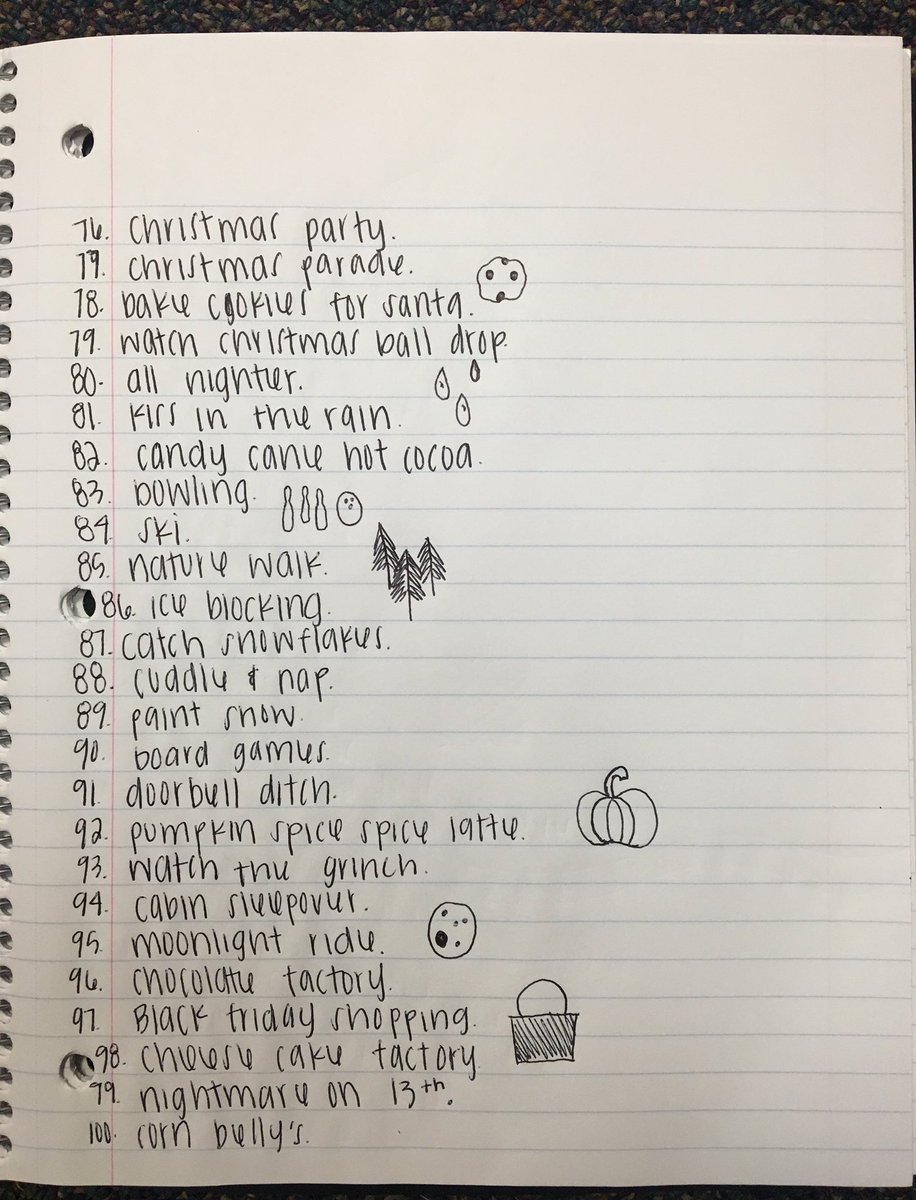 76. christmas party.
77. christmas parade.
78. bake cookies for santa.
79. watch christmas ball drop.
80. all nighter.
81. kiss in the rain.
82. candy cane hot cocoa.
83. bowling.
84. ski.
85. nature walk.
86. ice blocking.
87. catch snowflakes.
88. cuddle & nap.
89. paint snow.
90. board games.
91. doorbell ditch.
92. pumpkin spice spice latte.
93. watch the grinch.
94. cabin sleepover.
95. moonlight ride.
96. chocolate factory.
97. Black friday shopping.
98. cheese cake factory
99. nightmare on 13th.
100. corn belly's.